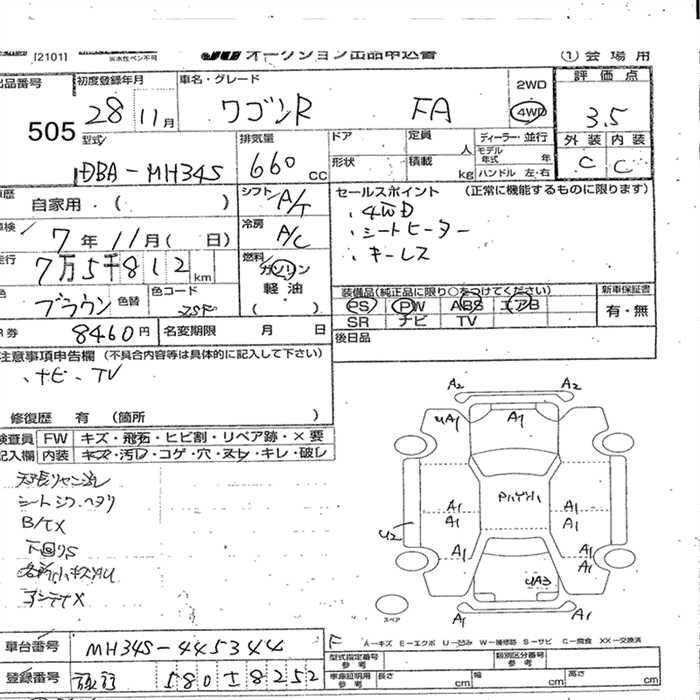 [2101]
JU オークション出品申込書
① 会場用
出品番号 505
初度登録年月 28 11月
車名・グレード ワゴンR FA
2WD 4WD
評価点 3.5
外装 C 内装 C
型式 DBA-MH34S
排気量 660 cc
ドア 形状
定員 人 積載 kg
ディーラー・並行
モデル年式 年
ハンドル 左・右
歴 自家用・( )
車検 7年11月( 日)
走行 7万5千812 km
シフト A/T
冷房 A/C
燃料 ガソリン 軽油 ( )
セールスポイント (正常に機能するものに限ります)
・4WD
・シートヒーター
・キーレス
色 ブラウン 色替 色コード
装備品(純正品に限り○をつけてください)
PS PW ABS エアB
SR ナビ TV
新車保証書 有・無
R券 8460円 名変期限 月 日
後日品
注意事項申告欄 (不具合内容等は具体的に記入して下さい)
・ナビ・TV
修復歴 有 (箇所 )
検査員記入欄
FW キズ・飛石・ヒビ割・リペア跡・×要
内装 キズ・汚レ・コゲ・穴・ヌレ・キレ・破レ
シートシワ・ヘタリ
B/TX
下回りS
アンテナX
A2 A2
UA1 A1 A1
A1 A1
A1 A1
U2
A1 A1
A1
UA3
A1 A1
スペア
車台番号 MH34S-445344
登録番号 580 う 8252
F A=キズ E=エクボ U=凹み W=補修跡 S=サビ C=腐食 XX=交換済
型式指定番号 参考 類別区分番号 参考
車庫証明用 参考 長さ cm 幅 cm 高さ cm